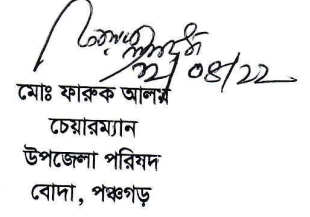 মোঃ ফারুক আলম
চেয়ারম্যান
উপজেলা পরিষদ
বোদা, পঞ্চগড়